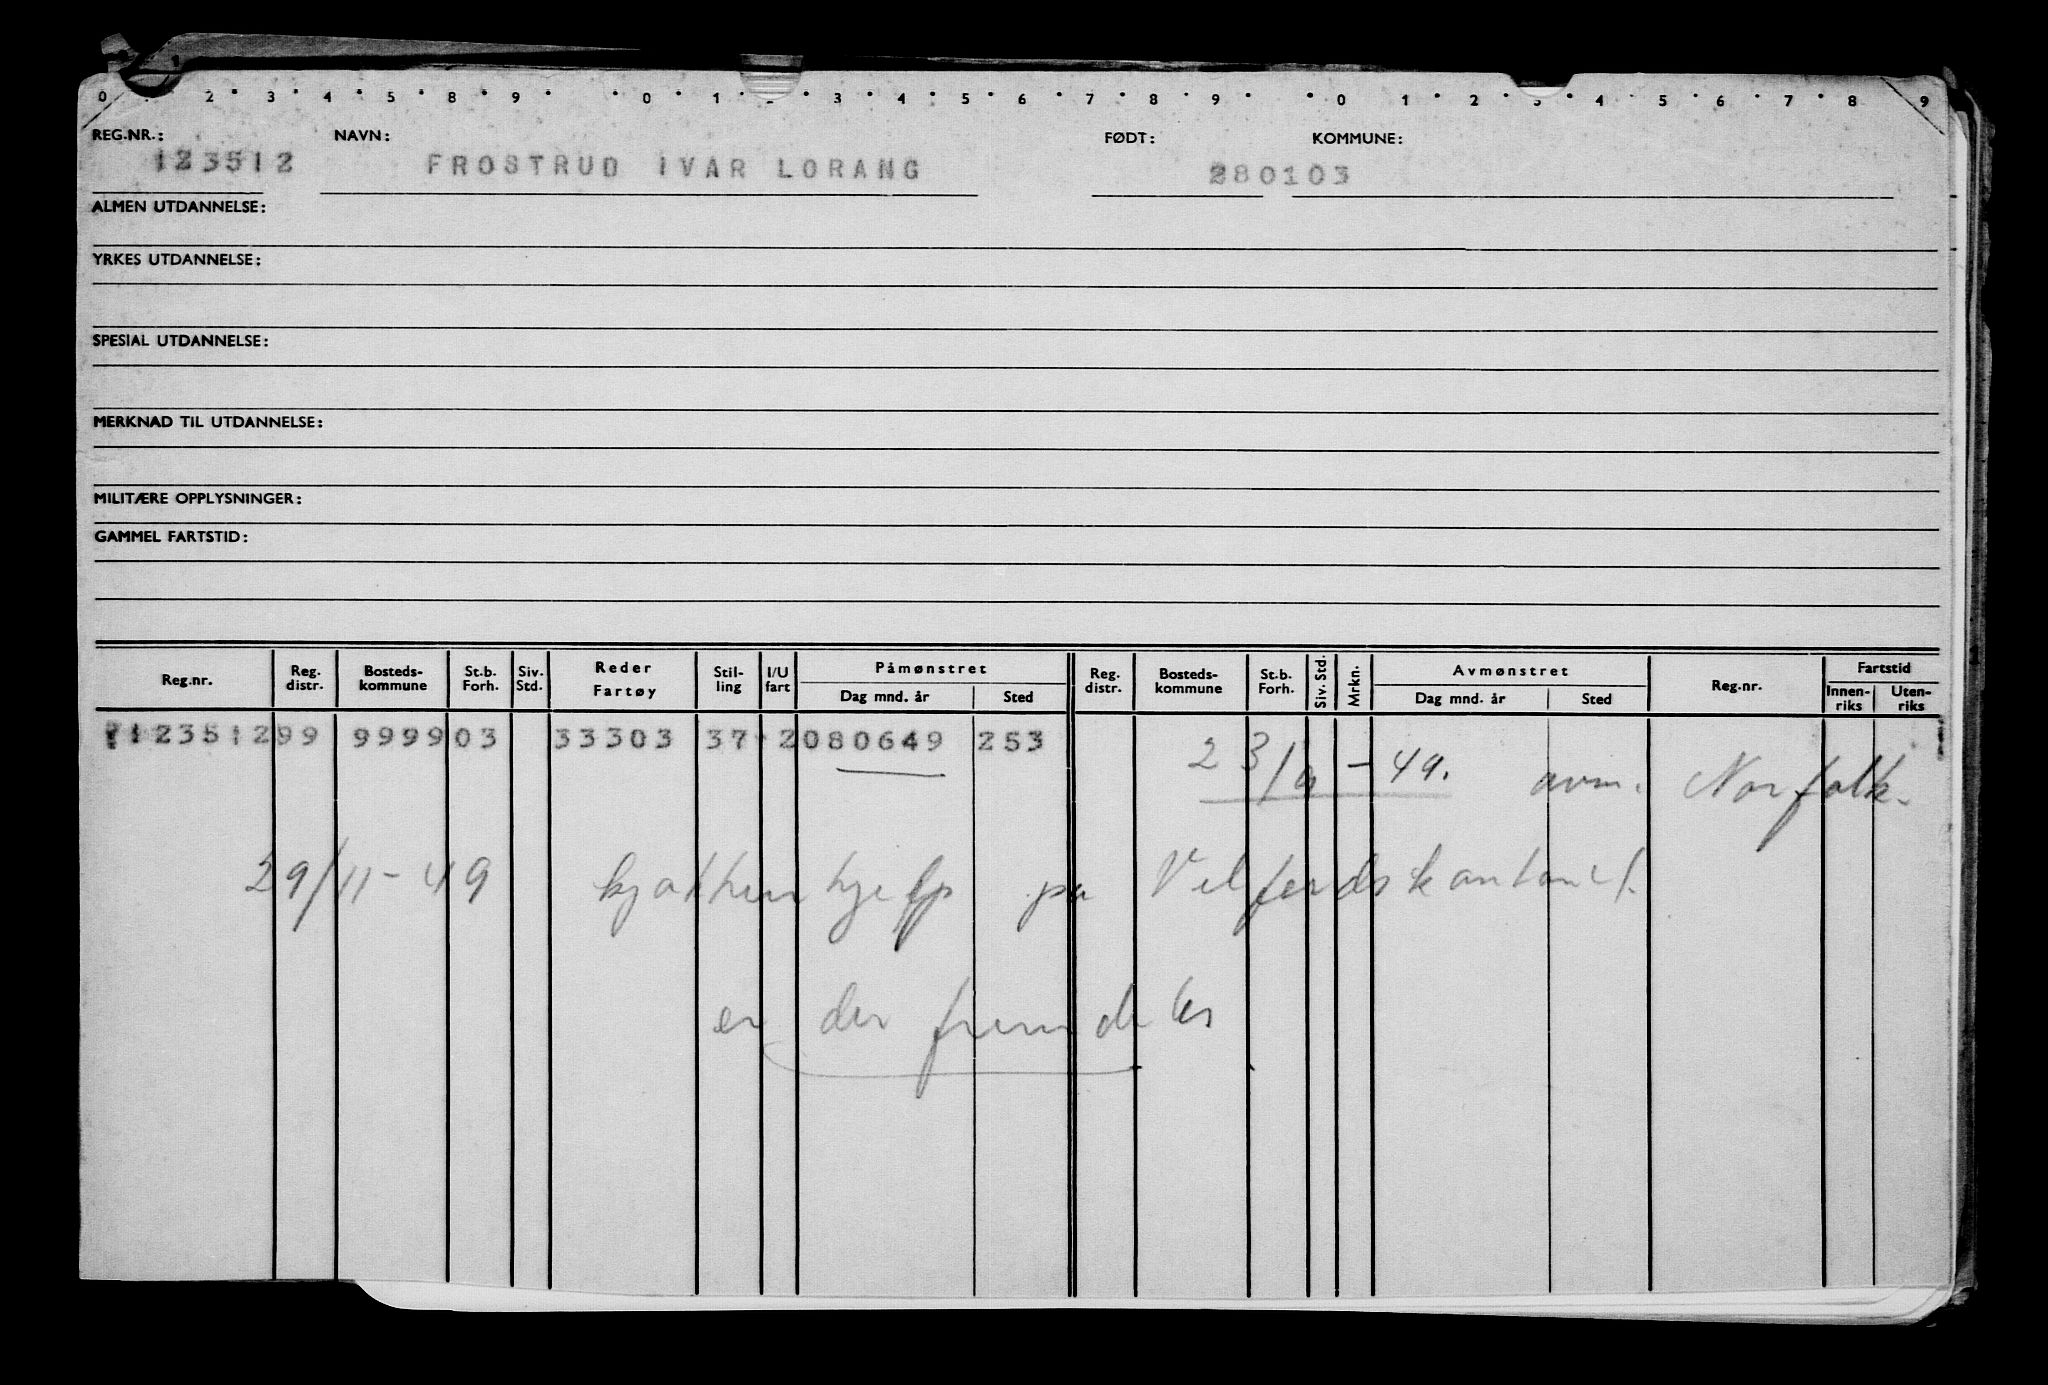 0 2 3 4 5 8 9 0 1 3 4 5 6 7 8 9 0 1 2 3 4 5 6 7 8 9
REG.NR.: NAVN: FØDT: KOMMUNE:
123512 FROSTRUD IVAR LORANG 280103
ALMEN UTDANNELSE:
YRKES UTDANNELSE:
SPESIAL UTDANNELSE:
MERKNAD TIL UTDANNELSE:
MILITÆRE OPPLYSNINGER:
GAMMEL FARTSTID:
Reg.nr. Reg. distr. Bosteds-kommune St.b. Forh. Siv. Std. Reder Fartøy Stil-ling I/U fart Påmønstret Dag mnd. år Sted Reg. distr. Bosteds-kommune St.b. Forh. Siv. Std. Mrkn. Avmønstret Dag mnd. år Sted Reg.nr. Fartstid Innen-riks Uten-riks
712351299 999903 33303 37 2080649 253
23/9 - 49. avm. Norfolk.
29/11-49 kjøkkenhjelp på Velferdskontoret.
er der fremdeles